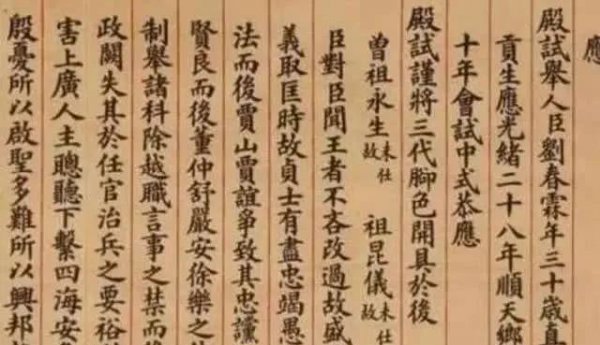 應
殿試舉人臣劉春霖年三十歲直
貢生應光緒二十八年順天鄉
十年會試中式恭應
殿試謹將三代腳色開具於後
曾祖永生未仕故 祖昆儀未仕故
臣對臣聞王者不吝改過故盛
義取匡時故貞士有盡忠竭愚
法而後賈山賈誼爭致其忠讜
賢良而後董仲舒嚴安徐樂之
制舉諸科除越職言事之禁而後
政闕失其於任官治兵之要裕
害上廣人主聰聽下繫四海安
殷憂所以啟聖多難所以興邦